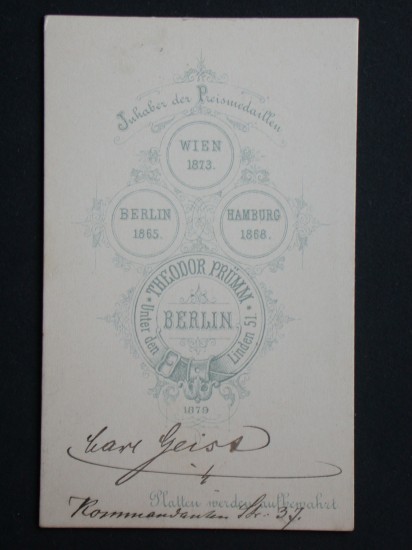 Inhaber der Preismedaillen
WIEN
1873.
BERLIN
1865.
HAMBURG
1868.
* THEODOR PRÜMM *
BERLIN.
Unter den Linden 51.
1879
Carl Geiss
Platten werden aufbewahrt
Kommandanten Str. 37.